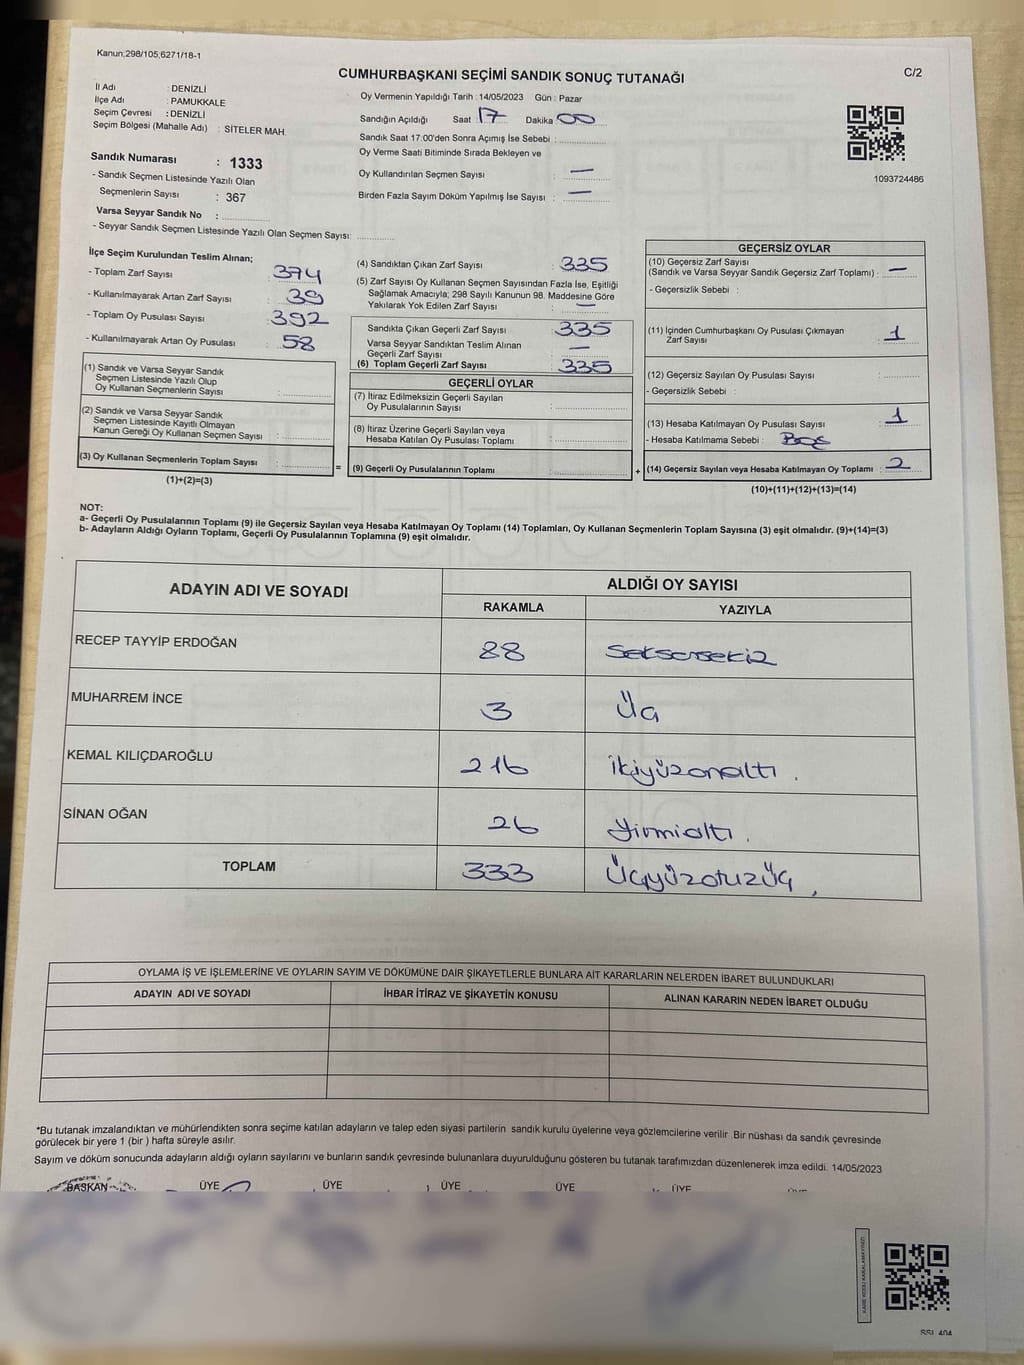 Kanun;298/105;6271/18-1
CUMHURBAŞKANI SEÇİMİ SANDIK SONUÇ TUTANAĞI
C/2
İl Adı : DENİZLİ
İlçe Adı : PAMUKKALE
Seçim Çevresi : DENİZLİ
Seçim Bölgesi (Mahalle Adı) : SİTELER MAH.
Sandık Numarası : 1333
- Sandık Seçmen Listesinde Yazılı Olan
Seçmenlerin Sayısı : 367
Varsa Seyyar Sandık No :
- Seyyar Sandık Seçmen Listesinde Yazılı Olan Seçmen Sayısı:
Oy Vermenin Yapıldığı Tarih : 14/05/2023 Gün : Pazar
Sandığın Açıldığı Saat 17 Dakika 00
Sandık Saat 17:00'den Sonra Açımış İse Sebebi :
Oy Verme Saati Bitiminde Sırada Bekleyen ve
Oy Kullandırılan Seçmen Sayısı : —
Birden Fazla Sayım Döküm Yapılmış İse Sayısı : —
1093724486
İlçe Seçim Kurulundan Teslim Alınan;
- Toplam Zarf Sayısı : 374
- Kullanılmayarak Artan Zarf Sayısı : 39
- Toplam Oy Pusulası Sayısı : 392
- Kullanılmayarak Artan Oy Pusulası : 58
(1) Sandık ve Varsa Seyyar Sandık
Seçmen Listesinde Yazılı Olup
Oy Kullanan Seçmenlerin Sayısı :
(2) Sandık ve Varsa Seyyar Sandık
Seçmen Listesinde Kayıtlı Olmayan
Kanun Gereği Oy Kullanan Seçmen Sayısı :
(3) Oy Kullanan Seçmenlerin Toplam Sayısı :
(1)+(2)=(3)
=
(4) Sandıktan Çıkan Zarf Sayısı : 335
(5) Zarf Sayısı Oy Kullanan Seçmen Sayısından Fazla İse, Eşitliği
Sağlamak Amacıyla; 298 Sayılı Kanunun 98. Maddesine Göre
Yakılarak Yok Edilen Zarf Sayısı : —
Sandıkta Çıkan Geçerli Zarf Sayısı : 335
Varsa Seyyar Sandıktan Teslim Alınan
Geçerli Zarf Sayısı : —
(6) Toplam Geçerli Zarf Sayısı : 335
GEÇERLİ OYLAR
(7) İtiraz Edilmeksizin Geçerli Sayılan
Oy Pusulalarının Sayısı :
(8) İtiraz Üzerine Geçerli Sayılan veya
Hesaba Katılan Oy Pusulası Toplamı :
(9) Geçerli Oy Pusulalarının Toplamı :
+
GEÇERSİZ OYLAR
(10) Geçersiz Zarf Sayısı
(Sandık ve Varsa Seyyar Sandık Geçersiz Zarf Toplamı) : —
- Geçersizlik Sebebi :
(11) İçinden Cumhurbaşkanı Oy Pusulası Çıkmayan
Zarf Sayısı : 1
(12) Geçersiz Sayılan Oy Pusulası Sayısı :
- Geçersizlik Sebebi :
(13) Hesaba Katılmayan Oy Pusulası Sayısı : 1
- Hesaba Katılmama Sebebi : Boş
(14) Geçersiz Sayılan veya Hesaba Katılmayan Oy Toplamı : 2
(10)+(11)+(12)+(13)=(14)
NOT:
a- Geçerli Oy Pusulalarının Toplamı (9) ile Geçersiz Sayılan veya Hesaba Katılmayan Oy Toplamı (14) Toplamları, Oy Kullanan Seçmenlerin Toplam Sayısına (3) eşit olmalıdır. (9)+(14)=(3)
b- Adayların Aldığı Oyların Toplamı, Geçerli Oy Pusulalarının Toplamına (9) eşit olmalıdır.
ADAYIN ADI VE SOYADI ALDIĞI OY SAYISI
RAKAMLA YAZIYLA
RECEP TAYYİP ERDOĞAN 88 Seksensekiz
MUHARREM İNCE 3 Üç
KEMAL KILIÇDAROĞLU 216 İkiyüzonaltı.
SİNAN OĞAN 26 Yirmialtı.
TOPLAM 333 Üçyüzotuzüç.
OYLAMA İŞ VE İŞLEMLERİNE VE OYLARIN SAYIM VE DÖKÜMÜNE DAİR ŞİKAYETLERLE BUNLARA AİT KARARLARIN NELERDEN İBARET BULUNDUKLARI
ADAYIN ADI VE SOYADI İHBAR İTİRAZ VE ŞİKAYETİN KONUSU ALINAN KARARIN NEDEN İBARET OLDUĞU
*Bu tutanak imzalandıktan ve mühürlendikten sonra seçime katılan adayların ve talep eden siyasi partilerin sandık kurulu üyelerine veya gözlemcilerine verilir. Bir nüshası da sandık çevresinde
görülecek bir yere 1 (bir ) hafta süreyle asılır.
Sayım ve döküm sonucunda adayların aldığı oyların sayılarını ve bunların sandık çevresinde bulunanlara duyurulduğunu gösteren bu tutanak tarafımızdan düzenlenerek imza edildi. 14/05/2023
BAŞKAN ÜYE ÜYE ÜYE ÜYE ÜYE